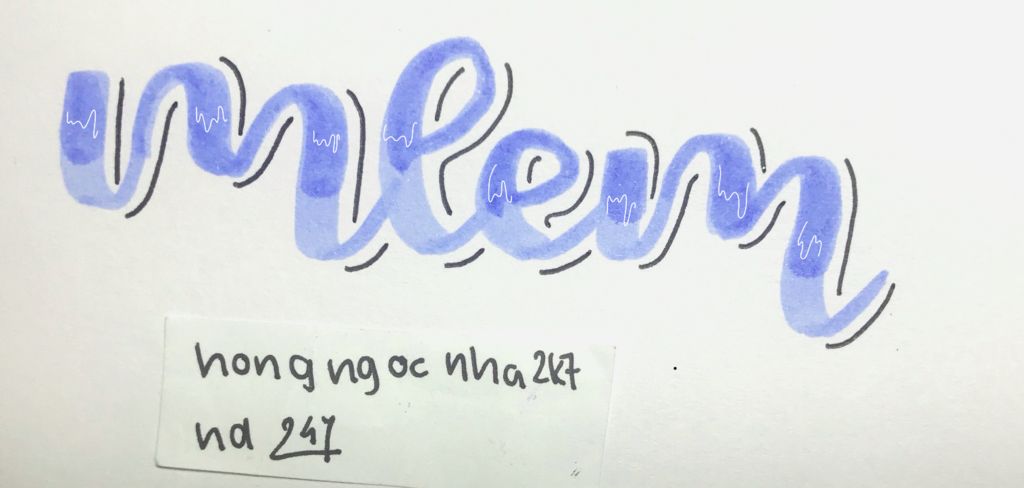 mlem
hongngoc nha2k7
nd 247